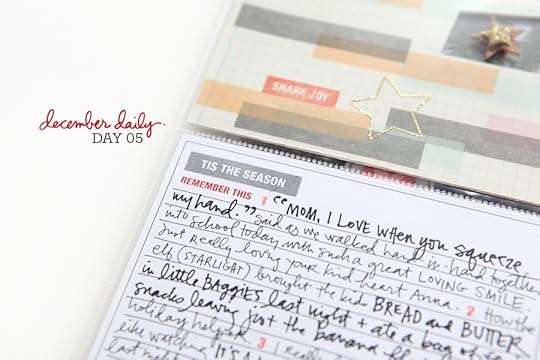 december daily.
DAY 05
SHARE JOY
TIS THE SEASON
REMEMBER THIS 1 "MOM, I LOVE WHEN YOU SQUEEZE
my hand." Said as we walked hand in hand together
into school today with such a great LOVING SMILE.
Just really loving your kind heart Anna. 2 How the
elf (STARLIGHT) brought the kid BREAD and BUTTER
in little BAGGIES last night + ate a bag of
snacks leaving just the banana
holiday helper. 3 I Really
like watching IT'S A
last night